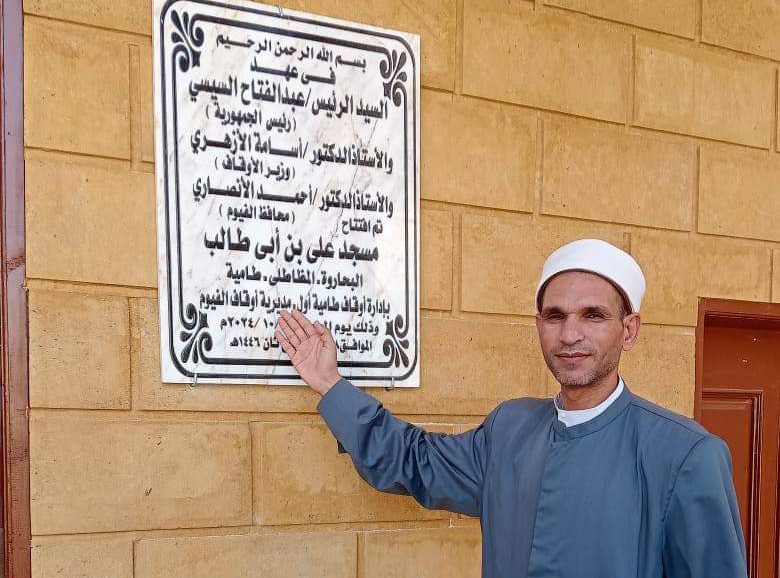 بسم الله الرحمن الرحيم
فى عهد
السيد الرئيس/عبدالفتاح السيسي
(رئيس الجمهورية)
والأستاذالدكتور/أسامة الأزهري
(وزير الأوقاف)
والأستاذالدكتور/أحمد الأنصاري
(محافظ الفيوم)
تم افتتاح
مسجد على بن أبى طالب
البحاروة-المقاطلى-طامية
بإدارة أوقاف طامية أول-مديرية أوقاف الفيوم
وذلك يوم /١٠/٢٠٢٤م
الموافق ١٤٤٦هـ